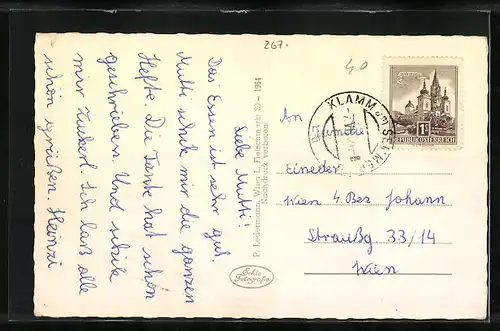 267.
40
Liebe Mutti!
Das Essen ist sehr gut.
Mutti schik mir die ganzen
Hefte. Die Tante hat schon
geschrieben. Und schik
mir Zuckerl. Ich laß alle
schön grüßen. Heinzi
P. Ledermann, Wien I, Fleischmarkt 20 - 1964
Nachdruck verboten!
Echte
Fotografie
KLAMM a/m SEMMER
1 S
REPUBLIK ÖSTERREICH
An
Familie
Eineder
Wien 4 Bez Johann
Straußg. 33/14
Wien